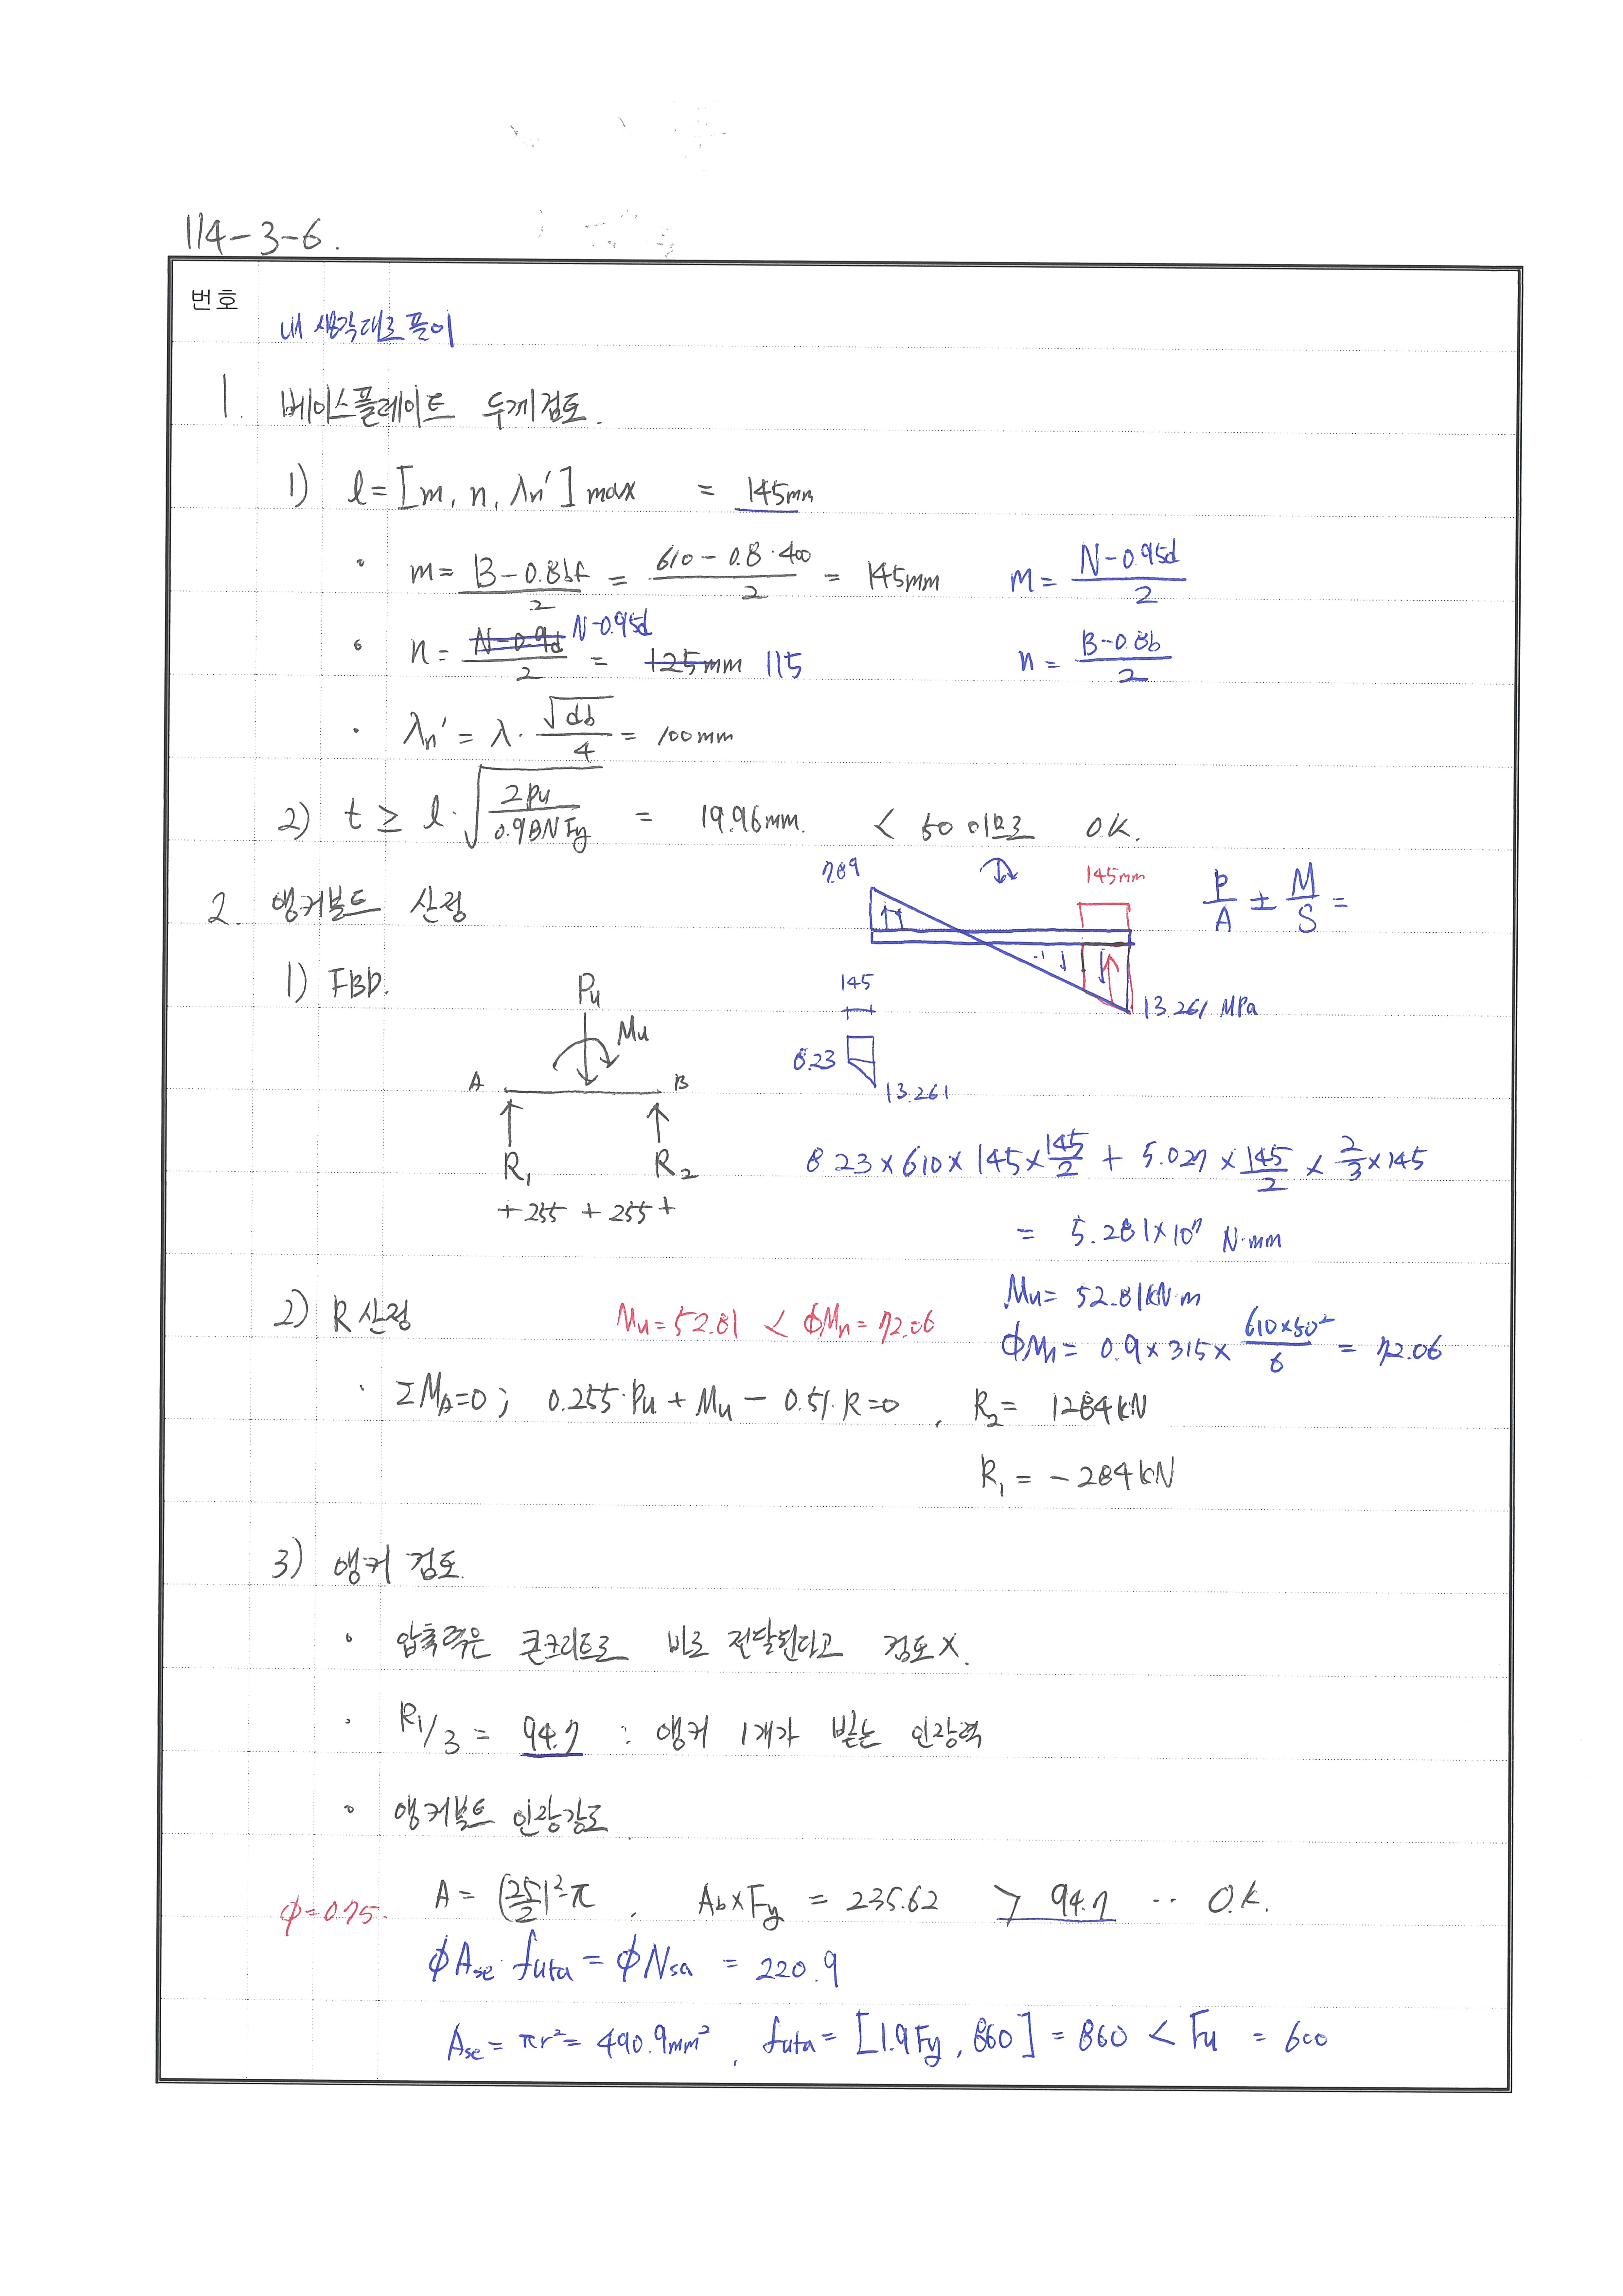 114-3-6.
번호
내 생각대로 풀이
1. 베이스플레이트 두께검토.
1) l = [m, n, λn']max = 145mm
· m = (B-0.8bf)/2 = (610-0.8·400)/2 = 145mm m = (N-0.95d)/2
· n = (N-0.9d)/2 N-0.95d = 125mm 115 n = (B-0.8b)/2
· λn' = λ·√db/4 = 100mm
2) t ≥ l·√(2Pu/0.9BNFy) = 19.96mm. < 50 이므로 O.K.
7.89 145mm P/A ± M/S =
2. 앵커볼트 산정
1) FBD.
Pu
Mu
A B
R1 R2
+255 + 255+
13.261 MPa
145
8.23
13.261
8.23×610×145×145/2 + 5.027×145/2×2/3×145
= 5.281×10⁷ N·mm
Mu = 52.81kN·m
2) R 산정 Mu=52.81 < ϕMn=72.06
ϕMn = 0.9×315×(610×50²)/6 = 72.06
· ΣMA=0; 0.255·Pu + Mu - 0.51·R=0, R2 = 1284kN
R1 = -284kN
3) 앵커 검토.
· 압축력은 콘크리트로 바로 전달된다고 검토X.
· R1/3 = 94.7 : 앵커 1개가 받는 인장력
· 앵커볼트 인장강도
ϕ=0.75. A = (25/2)²π, Ab×Fy = 235.62 > 94.7 ·· O.K.
ϕAse·futa = ϕNsa = 220.9
Ase = πr² = 490.9mm², futa = [1.9Fy, 860] = 860 < Fu = 600